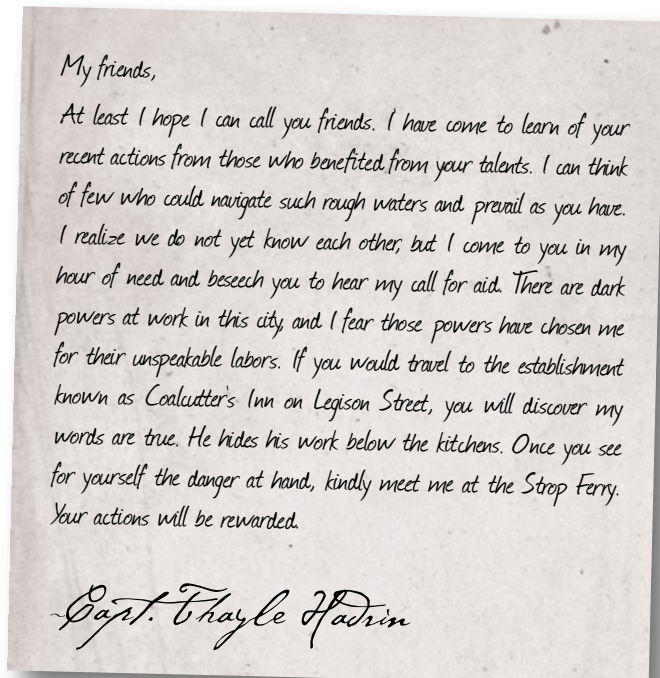 My friends,
At least I hope I can call you friends. I have come to learn of your
recent actions from those who benefited from your talents. I can think
of few who could navigate such rough waters and prevail as you have.
I realize we do not yet know each other, but I come to you in my
hour of need and beseech you to hear my call for aid. There are dark
powers at work in this city, and I fear those powers have chosen me
for their unspeakable labors. If you would travel to the establishment
known as Coalcutter's Inn on Legison Street, you will discover my
words are true. He hides his work below the kitchens. Once you see
for yourself the danger at hand, kindly meet me at the Strop Ferry.
Your actions will be rewarded.
~Capt. Thayle Hadrin